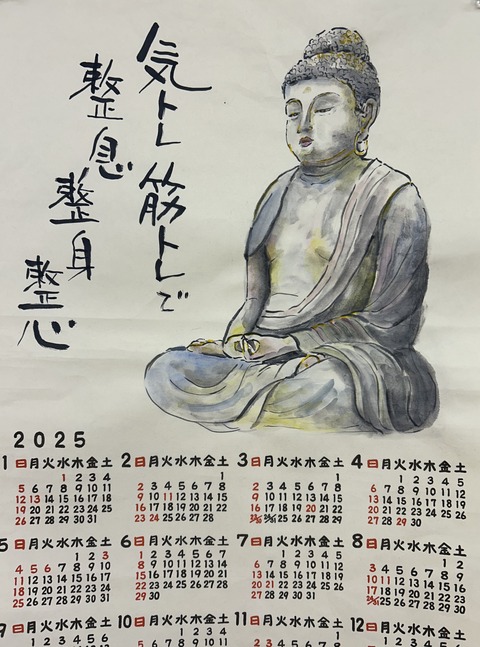 気トレ筋トレで
整息
整身
整心
2025
1
日月火水木金土
1 2 3 4
5 6 7 8 9 10 11
12 13 14 15 16 17 18
19 20 21 22 23 24 25
26 27 28 29 30 31
2
日月火水木金土
1
2 3 4 5 6 7 8
9 10 11 12 13 14 15
16 17 18 19 20 21 22
23 24 25 26 27 28
3
日月火水木金土
1
2 3 4 5 6 7 8
9 10 11 12 13 14 15
16 17 18 19 20 21 22
23/30 24/31 25 26 27 28 29
4
日月火水木金土
1 2 3 4 5
6 7 8 9 10 11 12
13 14 15 16 17 18 19
20 21 22 23 24 25 26
27 28 29 30
5
日月火水木金土
1 2 3
4 5 6 7 8 9 10
11 12 13 14 15 16 17
18 19 20 21 22 23 24
25 26 27 28 29 30 31
6
日月火水木金土
1 2 3 4 5 6 7
8 9 10 11 12 13 14
15 16 17 18 19 20 21
22 23 24 25 26 27 28
29 30
7
日月火水木金土
1 2 3 4 5
6 7 8 9 10 11 12
13 14 15 16 17 18 19
20 21 22 23 24 25 26
27 28 29 30 31
8
日月火水木金土
1 2
3 4 5 6 7 8 9
10 11 12 13 14 15 16
17 18 19 20 21 22 23
24/31 25 26 27 28 29 30
9
日月火水木金土
1 2 3 4 5 6
10
日月火水木金土
1 2 3 4
5 6 7 8 9 10 11
11
日月火水木金土
1
2 3 4 5 6 7 8
12
日月火水木金土
1 2 3 4 5 6